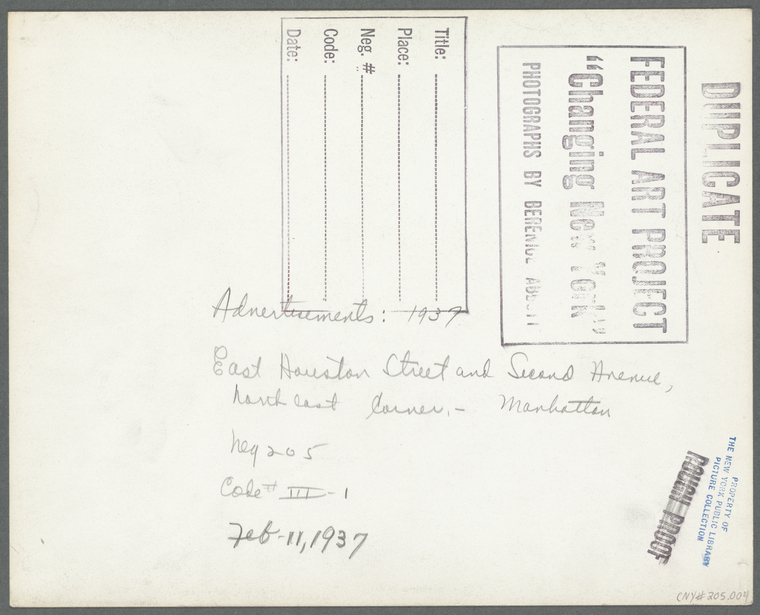 DUPLICATE
FEDERAL ART PROJECT
"Changing New York"
PHOTOGRAPHS BY BERENICE ABBOTT
Title:
Place:
Neg. #
Code:
Date:
Advertisements: 1937
East Houston Street and Second Avenue,
North east Corner, - Manhattan
Neg 205
Code # III-1
Feb-11, 1937
PROPERTY OF
THE NEW YORK PUBLIC LIBRARY
PICTURE COLLECTION
ROUGH PROOF
(NY)#205.004